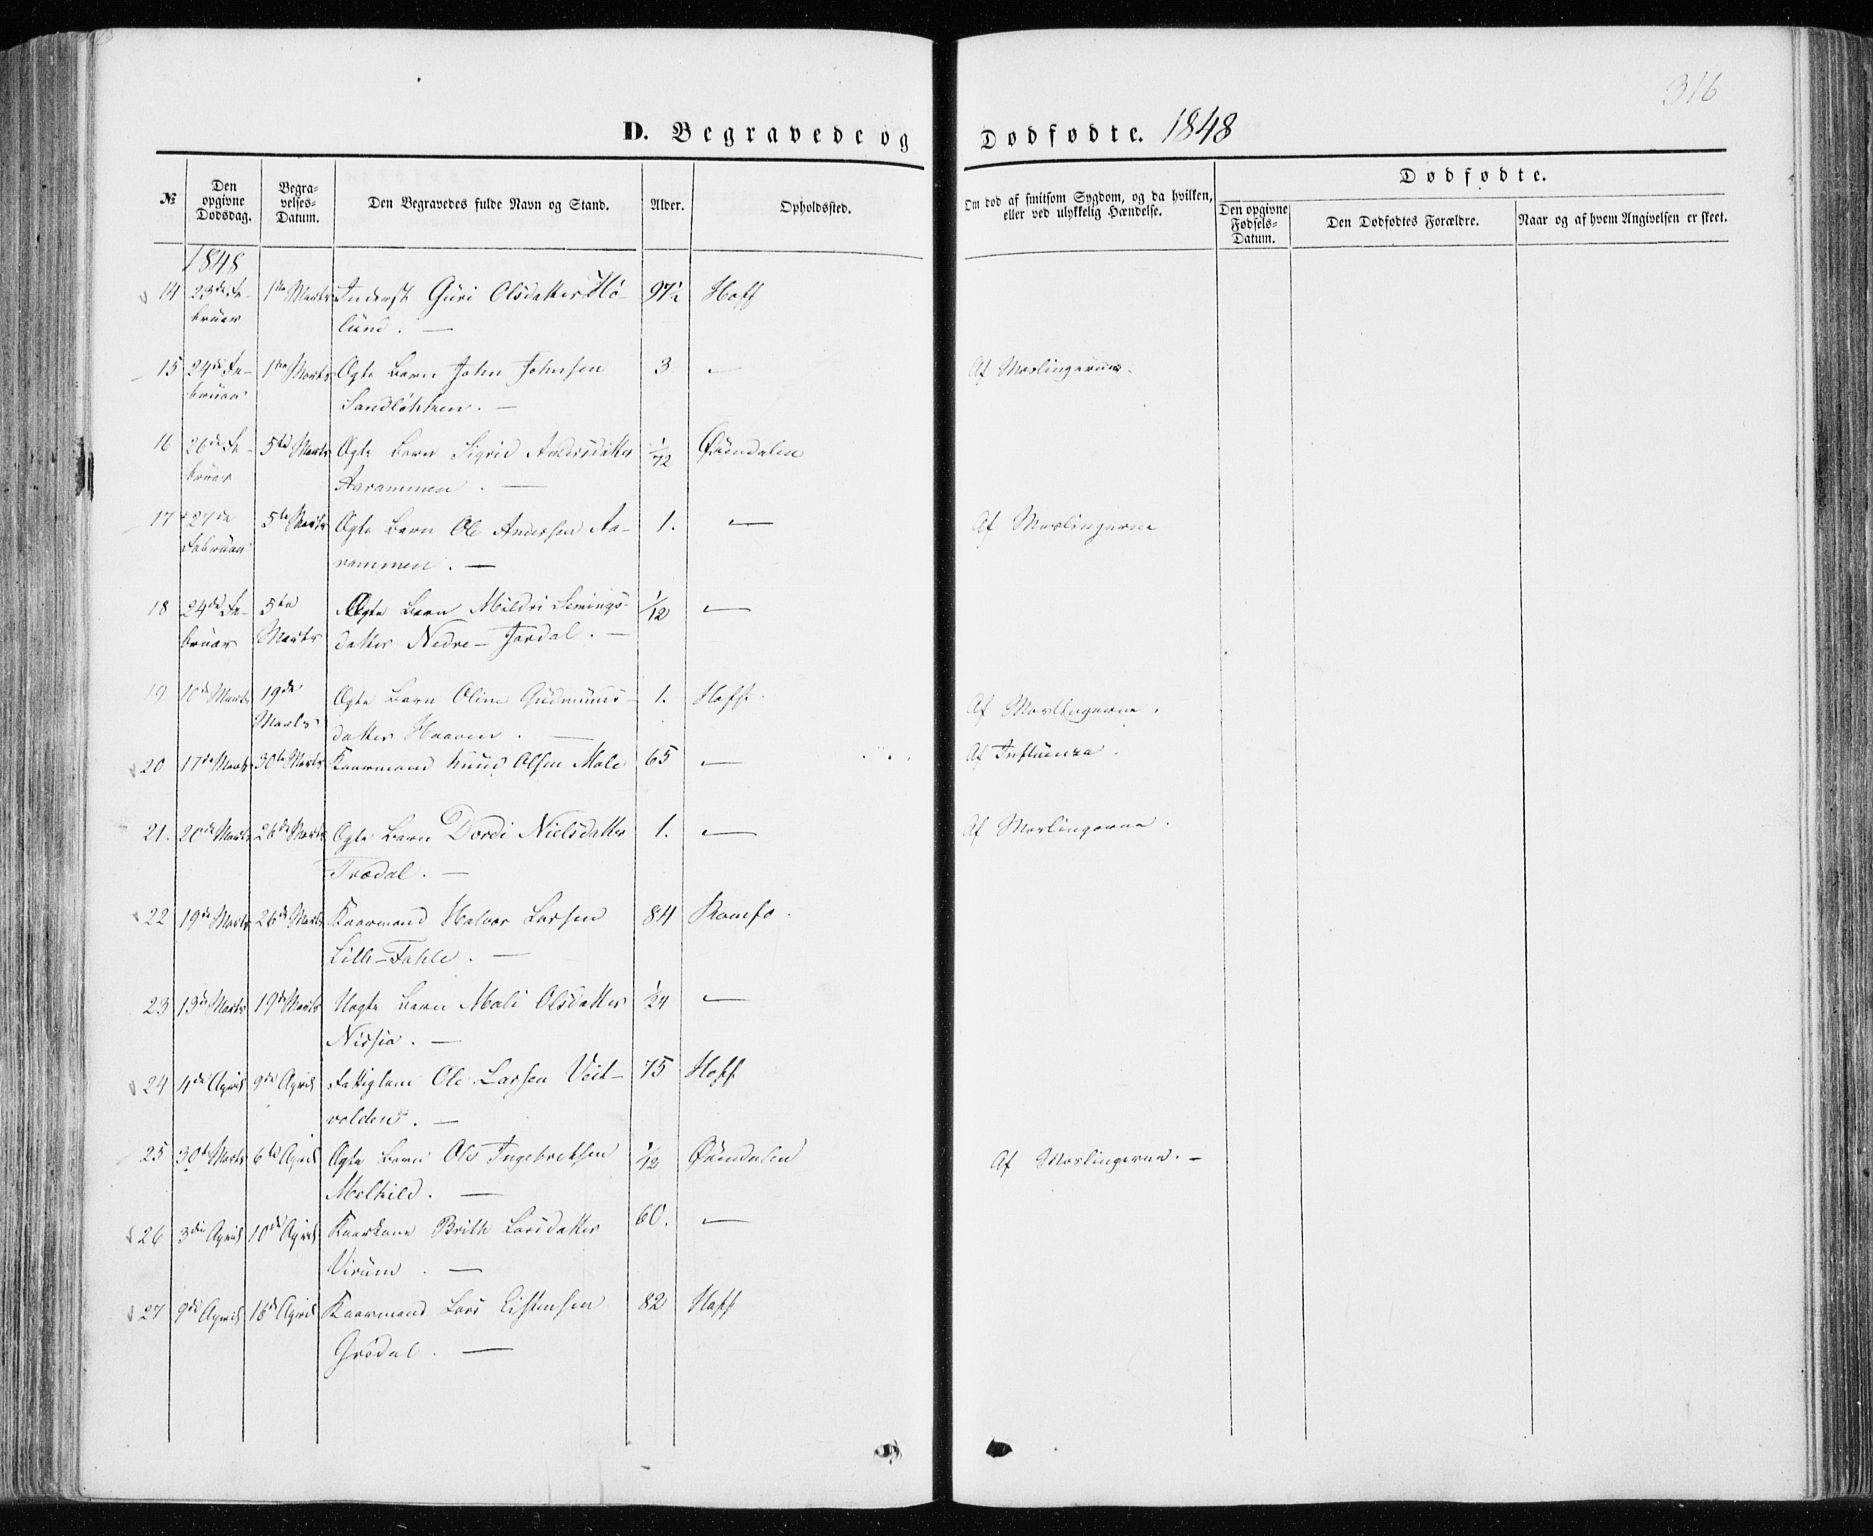 316
D. Begravede og Dødfødte. 1848
№
Den opgivne Dødsdag.
Begravelses-Datum.
Den Begravedes fulde Navn og Stand.
Alder.
Opholdssted.
Om død af smitsom Sygdom, og da hvilken, eller ved ulykkelig Hændelse.
Dødfødte.
Den opgivne Fødsels-Datum.
Den Dødfødtes Forældre.
Naar og af hvem Angivelsen er skeet.
1848
14 23de Fe- 1ste Marts Inderst Guri Olsdatter Hö- 97½ Hoff
bruar lund. —
15 24de Fe- 1ste Marts Ægte Barn John Johnsen 3 — Af Meslingerne.
bruar Sandløkken. —
16 26de Fe- 5te Marts Ægte Barn Sigrid Andersdatter 1/12 Öxendalen
bruar Aarammen. —
17 27de 5te Marts Ægte Barn Ole Andersen Aa- 1. — Af Meslingerne
Februar rammen. —
18 24de Fe- 5te Ægte Barn Mildri Semings- 1/12 —
bruar Marts datter Nedre-Jordal. —
19 10de Marts 19de Ægte Barn Oline Gudmunds- 1. Hoff. Af Meslingerne.
Marts datter Haaven. —
20 17de Marts 30te Marts Kaarmand Knud Olsen Mæle 65 — Af Influenza.
21. 20de Marts 26de Marts Ægte Barn Dordi Nielsdatter 1. — Af Meslingerne.
Trædal. —
22 19de Marts 26de Marts Kaarmand Halvor Larsen 84 Romfo.
Lille-Fahle. —
23 13de Marts 19de Marts Uægte Barn Mali Olsdatter 1/24 —
Nisja. —
24 4de April 9de April Fattiglem Ole Larsen Veit- 75 Hoff
volden. —
25 30te Marts 6te April Ægte Barn Ole Ingebretsen 1/12 Öxendalen Af Meslingerne. —
Melkild. —
26 3die April 10de April Kaarkone Brith Larsdatter 60. —
Virum. —
27 9de April 16de April Kaarmand Lars Eistensen 82 Hoff
Grödal. —